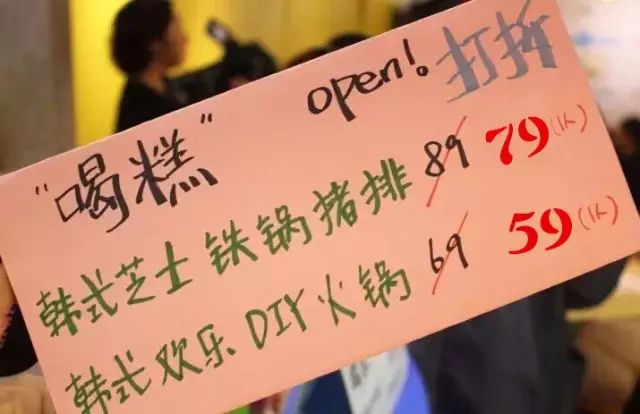 "喝糕" open! 打折
韩式芝士铁锅猪排 89 79(1人)
韩式欢乐DIY火锅 69 59(1人)